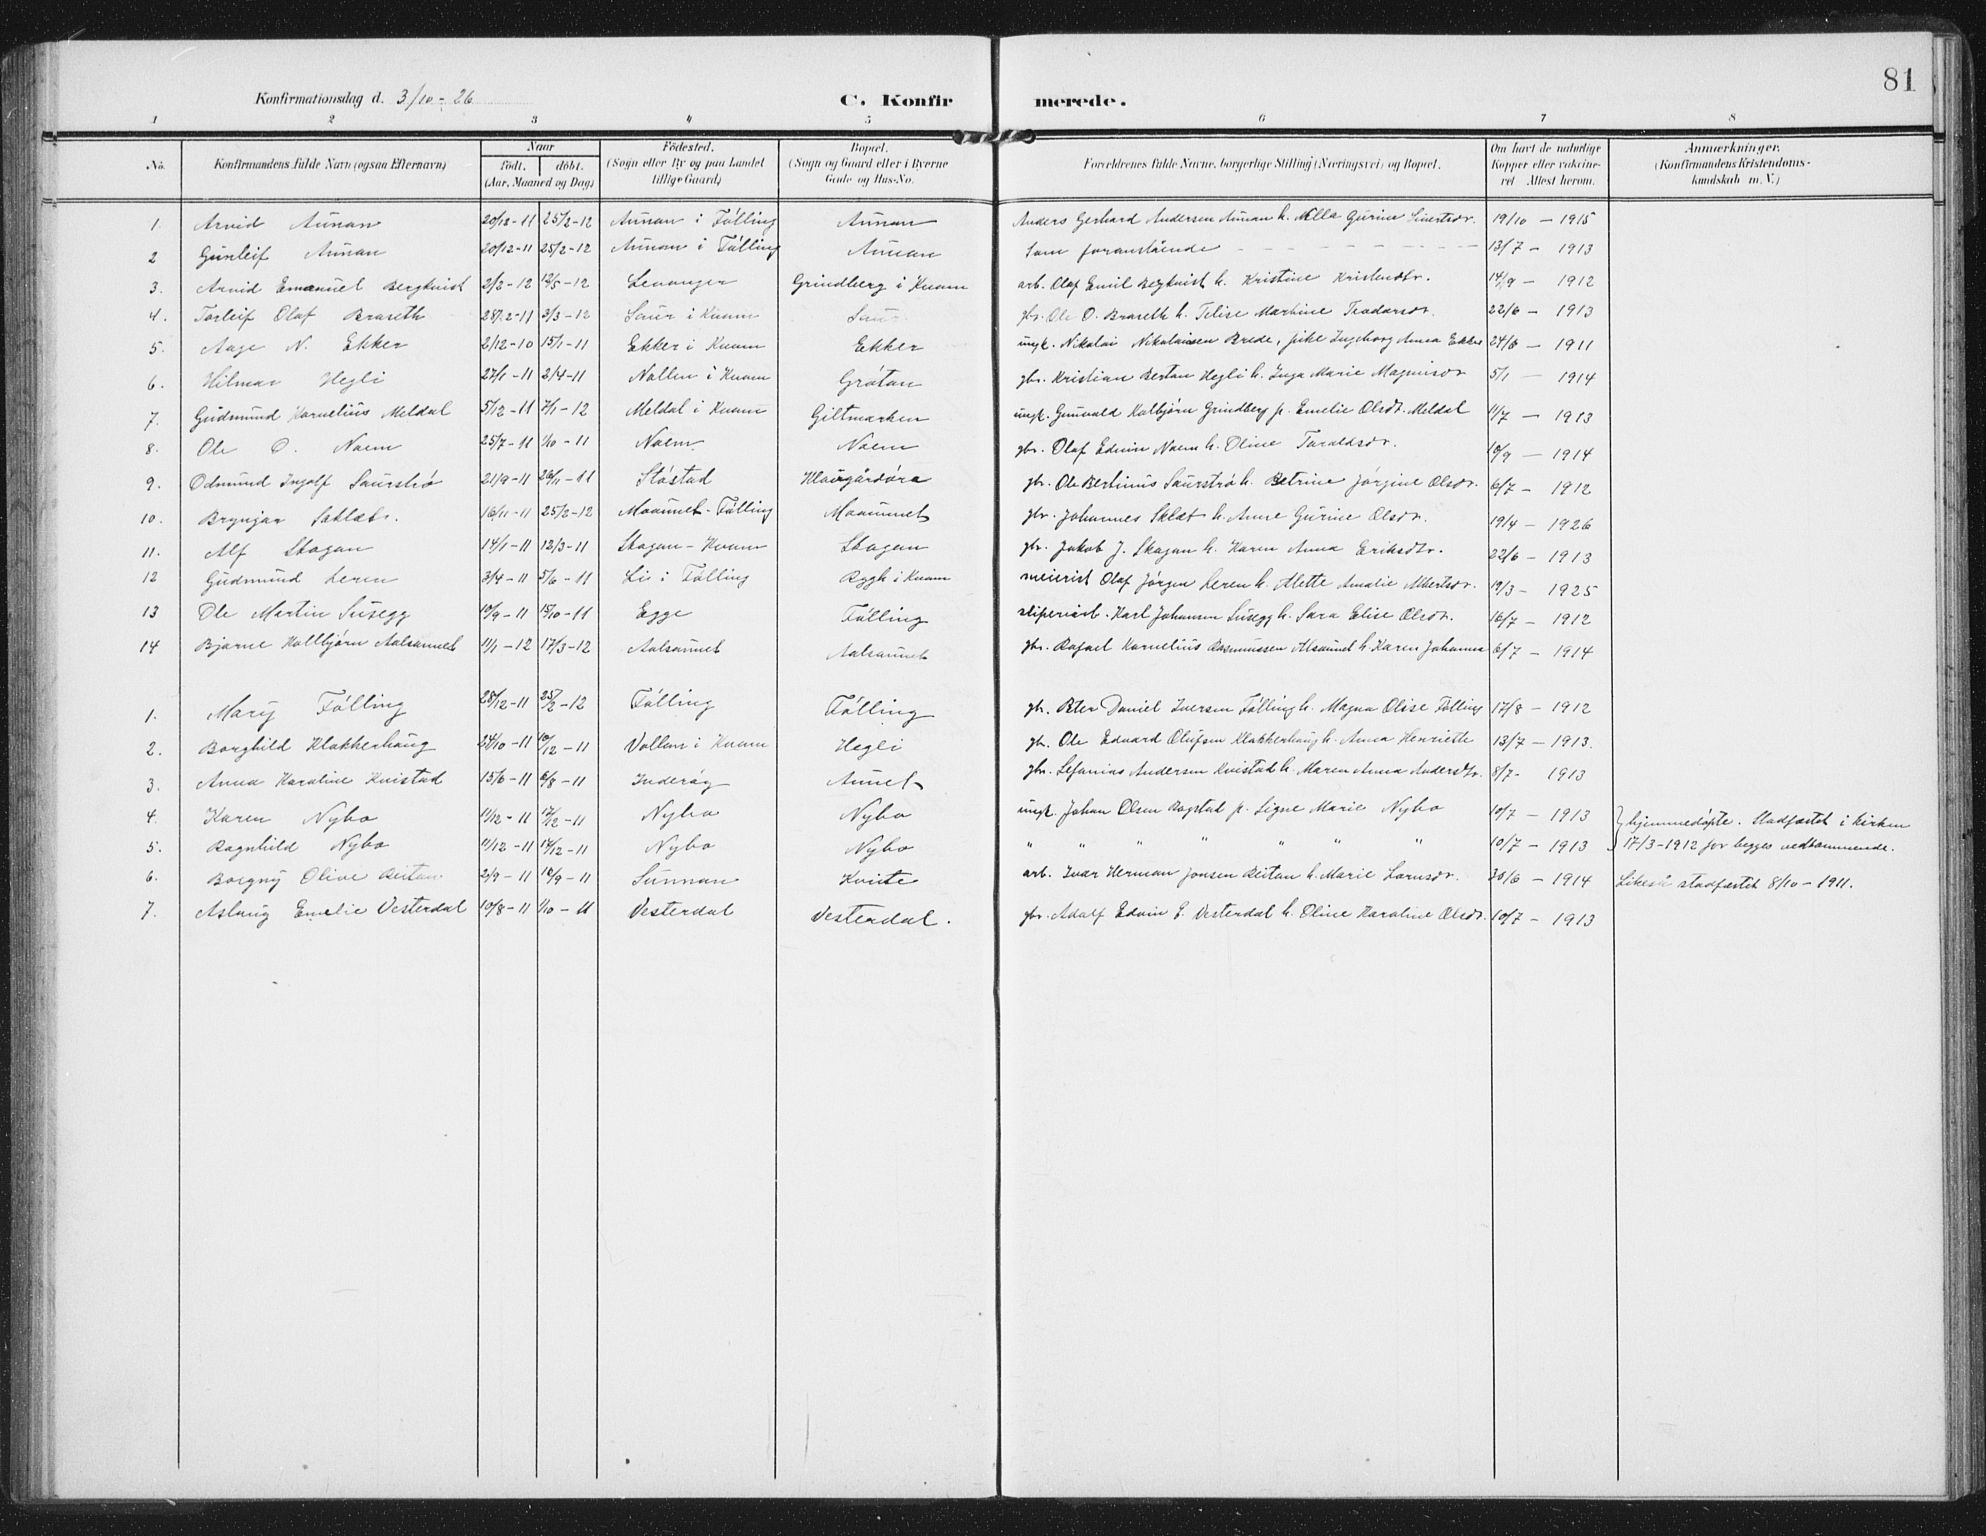 81
Konfirmationsdag d. 3/10 - 26 C. Konfirmerede.
1 2 3 4 5 6 7 8
No. Konfirmandens fulde Navn (ogsaa Efternavn) Naar født. døbt. (Aar, Maaned og Dag) Fødested. (Sogn eller By og paa Landet tillige Gaard) Bopæl. (Sogn og Gaard eller i Byerne Gade og Hus-No. Forældrenes fulde Navne, borgerlige Stilling (Næringsvei) og Bopæl. Om havt de naturlige Kopper eller vaksineret Attest herom. Anmærkninger. (Konfirmandens Kristendomskundskab m. V.)
1. Arvid Aunan 20/12-11 25/2-12 Aunan i Følling Aunan Anders Gerhard Andersen Aunan h. Nella Gurine Sivertsdr. 19/10 - 1915
2 Gunleif Aunan 20/12-11 25/2-12 Aunan i Følling Aunan Som foranstående 13/7 - 1913
3. Arvid Emanuel Bergkvist 2/2-12 12/5-12 Levanger Grindberg i Kvam arb. Olaf Emil Bergkvist h. Kristine Kristensdtr. 14/9 - 1912
4. Torleif Olaf Braseth 28/12-11 3/3-12 Saur i Kvam Saur gbr. Ole O. Braseth h. Telise Martine Teodorsdr. 22/6 - 1913
5. Aage N. Ekker 2/12-10 15/1-11 Ekker i Kvam Ekker ungk. Nikolai Nikolaisen Brede, pike Ingeborg Anna Ekker 24/6 - 1911
6. Hilmar Hegli 27/1-11 2/4-11 Nøllen i Kvam Grøtan gbr. Kristian Bertan Hegli h. Inga Marie Magnusdr 5/1 - 1914
7. Gudmund Kornelius Meldal 5/12-11 7/1-12 Meldal i Kvam Giltmarken ungk. Gunvald Kolbjørn Grindberg p. Emelie Olsdt. Meldal 11/7 - 1913
8. Ole O. Noem 25/7-11 1/10-11 Noem Noem gbr. Olaf Edvin Noem h. Oline Taraldsdr. 10/9 - 1914
9. Odmund Ingolf Saurstrø 21/9-11 26/11-11 Støstad Haugårdøra gbr. Ole Bertinius Saurstrø h. Betrine Jørgine Olsdr. 6/7 - 1912
10. Brynjar Saklæt. 16/11-11 25/2-12 Moaunet-Følling Moaunet gbr. Johannes Sklæt h. Anne Gurine Olsdr. 19/4 - 1926
11. Alf Skogan 14/1-11 12/3-11 Skogan-Kvam Skogan gbr. Jakob J. Skogan h. Karen Anna Eriksdtr. 22/6 - 1913
12 Gudmund Leren 3/4-11 5/6-11 Li i Følling Bygh i Kvam meierist Olaf Jørgen Leren h. Alette Amalie Albertsdr. 19/3 - 1925
13 Ole Martin Susegg 10/9-11 15/10-11 Egge Følling sliperiarb. Karl Johansen Susegg h. Sara Elise Olsdr. 16/7 - 1912
14 Bjarne Kolbjørn Aalsaunet 11/1-12 17/3-12 Aalsaunet Aalsaunet gbr. Rafael Kornelius Rasmussen Alsaunet h. Karen Johanna 6/7 - 1914
1. Mary Følling 28/12-11 25/2-12 Følling Følling gbr. Peter Daniel Iversen Følling h. Magna Olise Følling 17/8 - 1912
2. Borghild Klokkerhaug 24/10-11 10/12-11 Vollen i Kvam Hegli gbr. Ole Edvard Olufsen Klokkerhaug h. Anna Henriette 13/7 - 1913.
3. Anna Karoline Kvistad 15/6-11 6/8-11 Inderøy Aunet gbr. Sefanias Andersen Kvistad h. Maren Anna Andersdtr. 8/7 - 1913
4. Karen Nybo 11/12-11 17/12-11 Nybo Nybo ungk. Johan Olsen Bogstad p. Signe Marie Nybo 10/7 - 1913 } hjemmedøpte. Stadfæstet i kirken
5. Ragnhild Nybo 11/12-11 17/12-11 Nybo Nybo " " " " " " " 10/7 - 1913 17/3-1912 for begges vedkommende.
6. Borgny Olive Beitan 2/9-11 10/9-11 Sunnan Kvite arb. Ivar Herman Jonsen Beitan h. Marie Larnsdr. 30/6 - 1914 Likeså stadfæstet 8/10-1911.
7. Aslaug Emelie Vesterdal 10/8-11 1/10-11 Vesterdal Vesterdal. gbr. Adolf Edvin E. Vesterdal h. Oline Karoline Olsdr. 10/7 - 1913